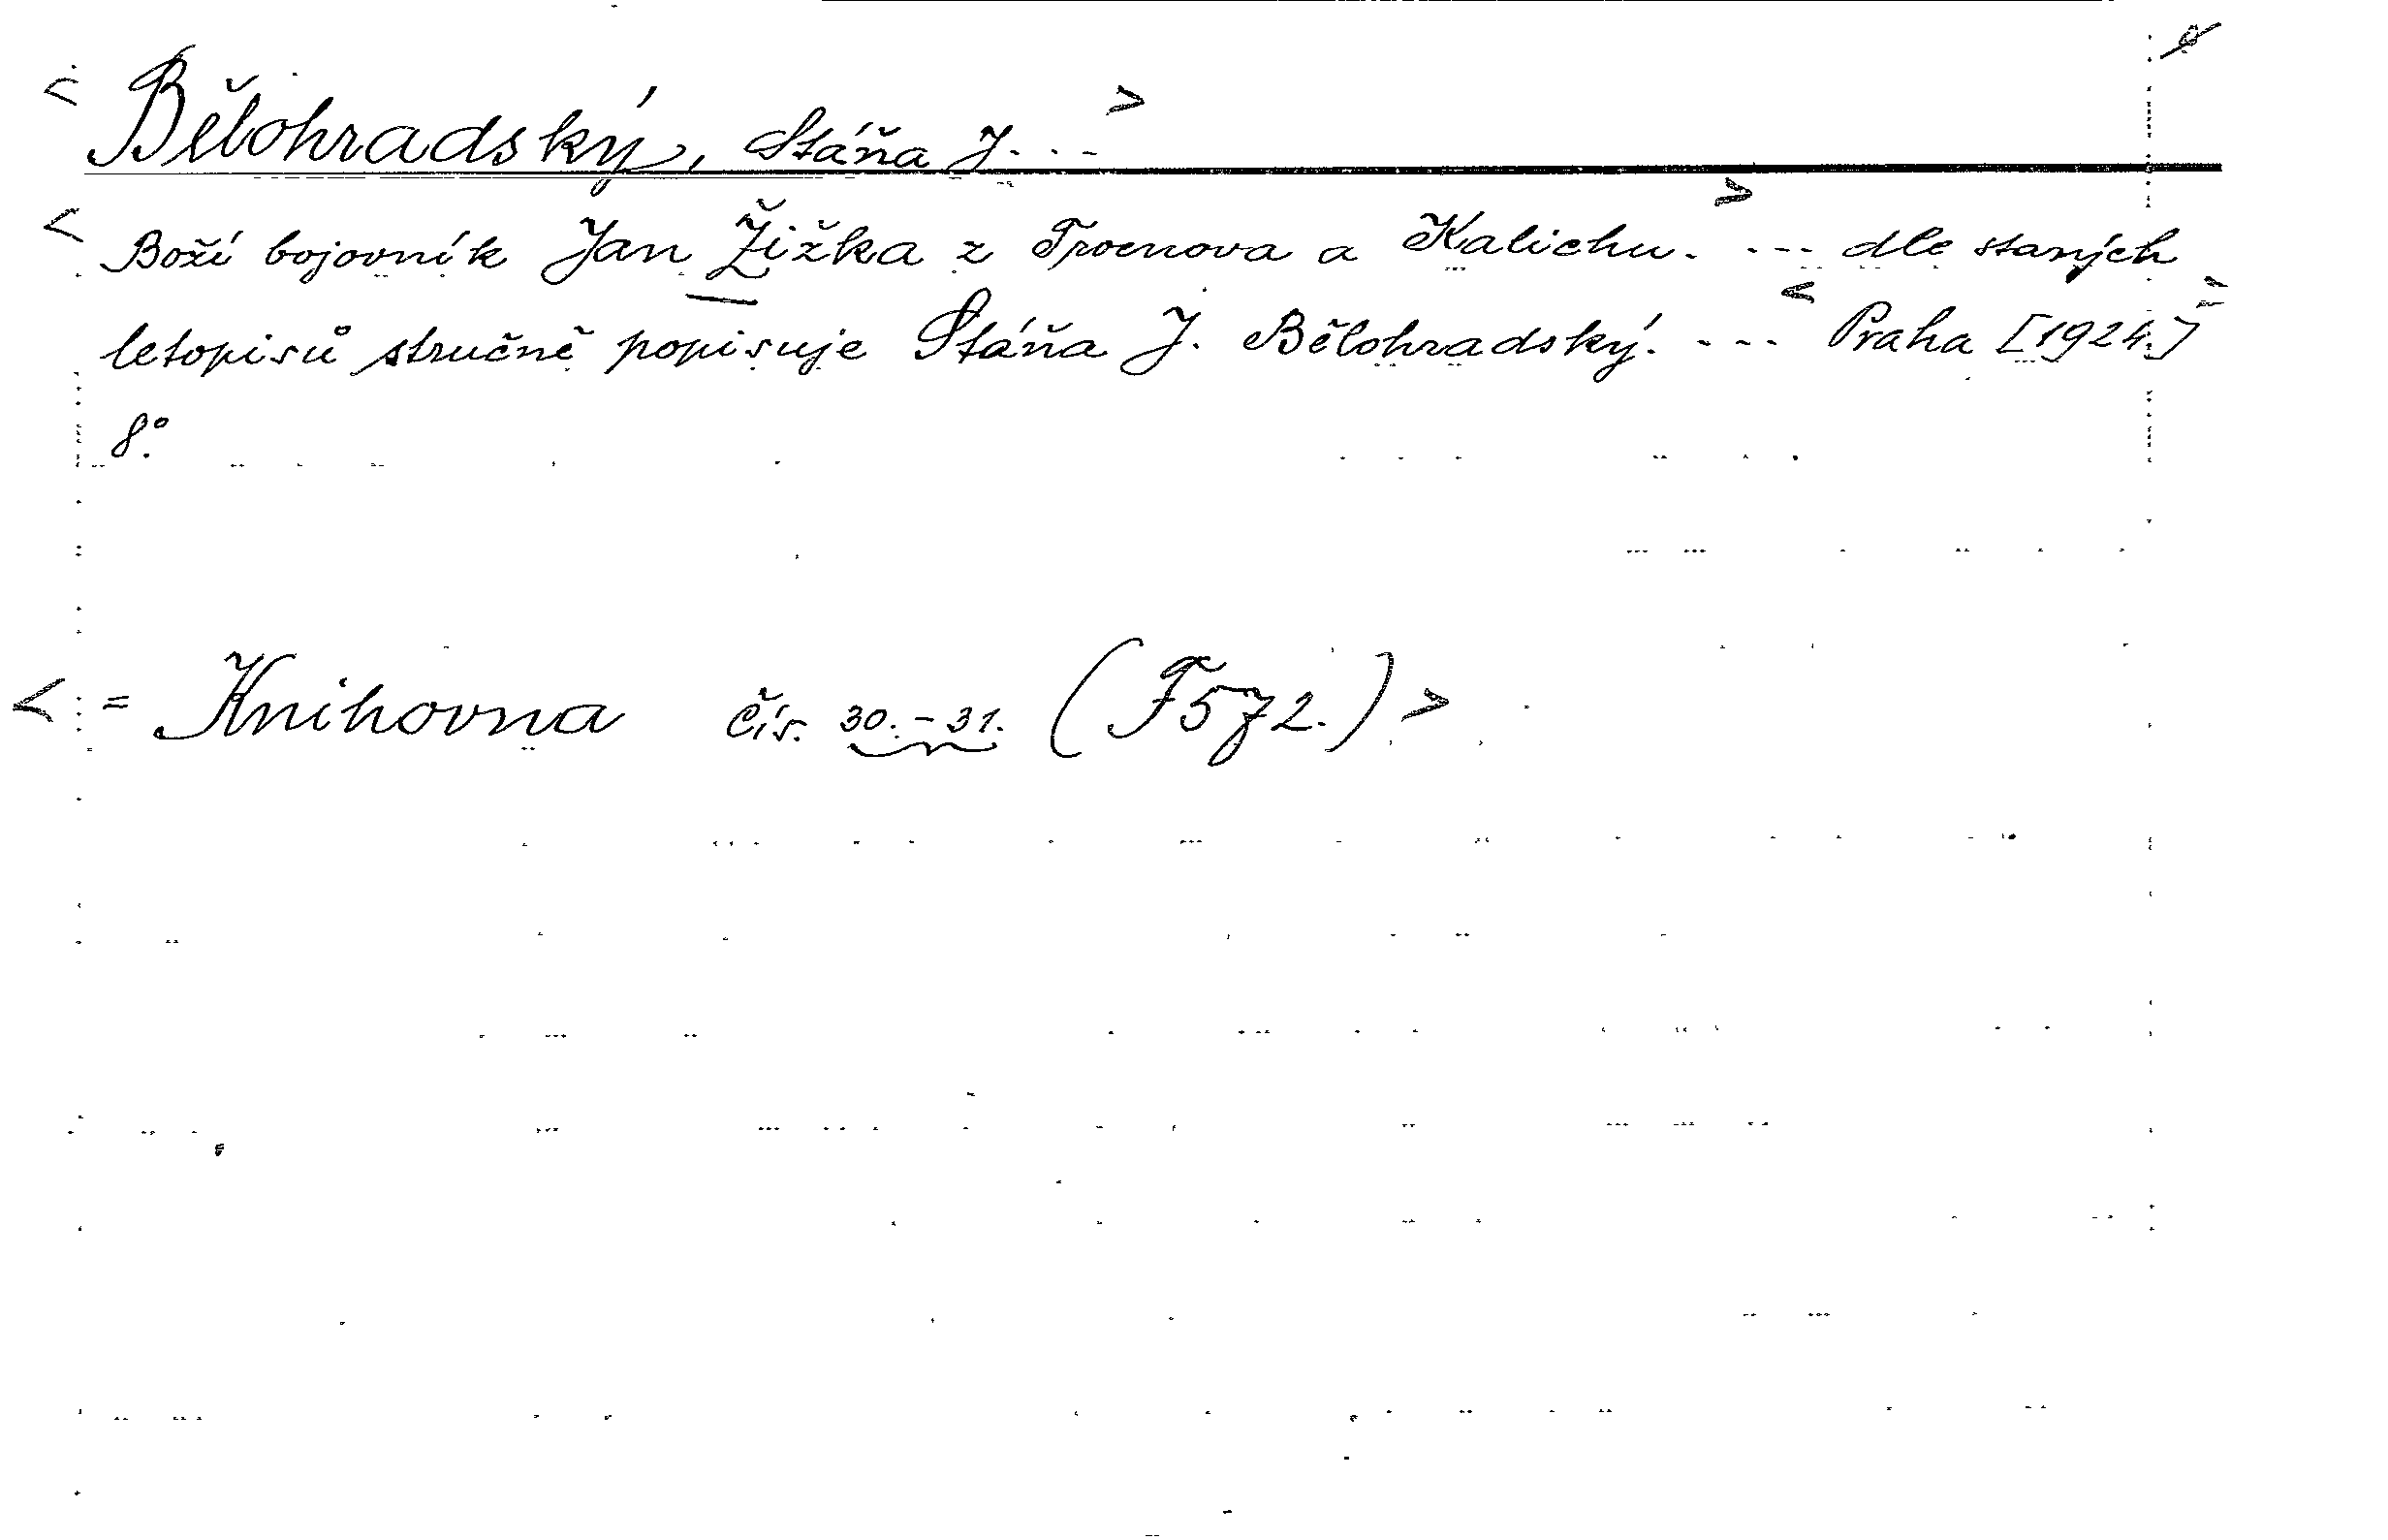 < Bělohradský, Stáňa J. . . - >
< Boží bojovník Jan Žižka z Trocnova a Kalichu. > --- dle starých
letopisů stručně popisuje Stáňa J. Bělohradský. --- < Praha [1924.] >
8°.
< = Knihovna čís. 30.-31. (F572.) >